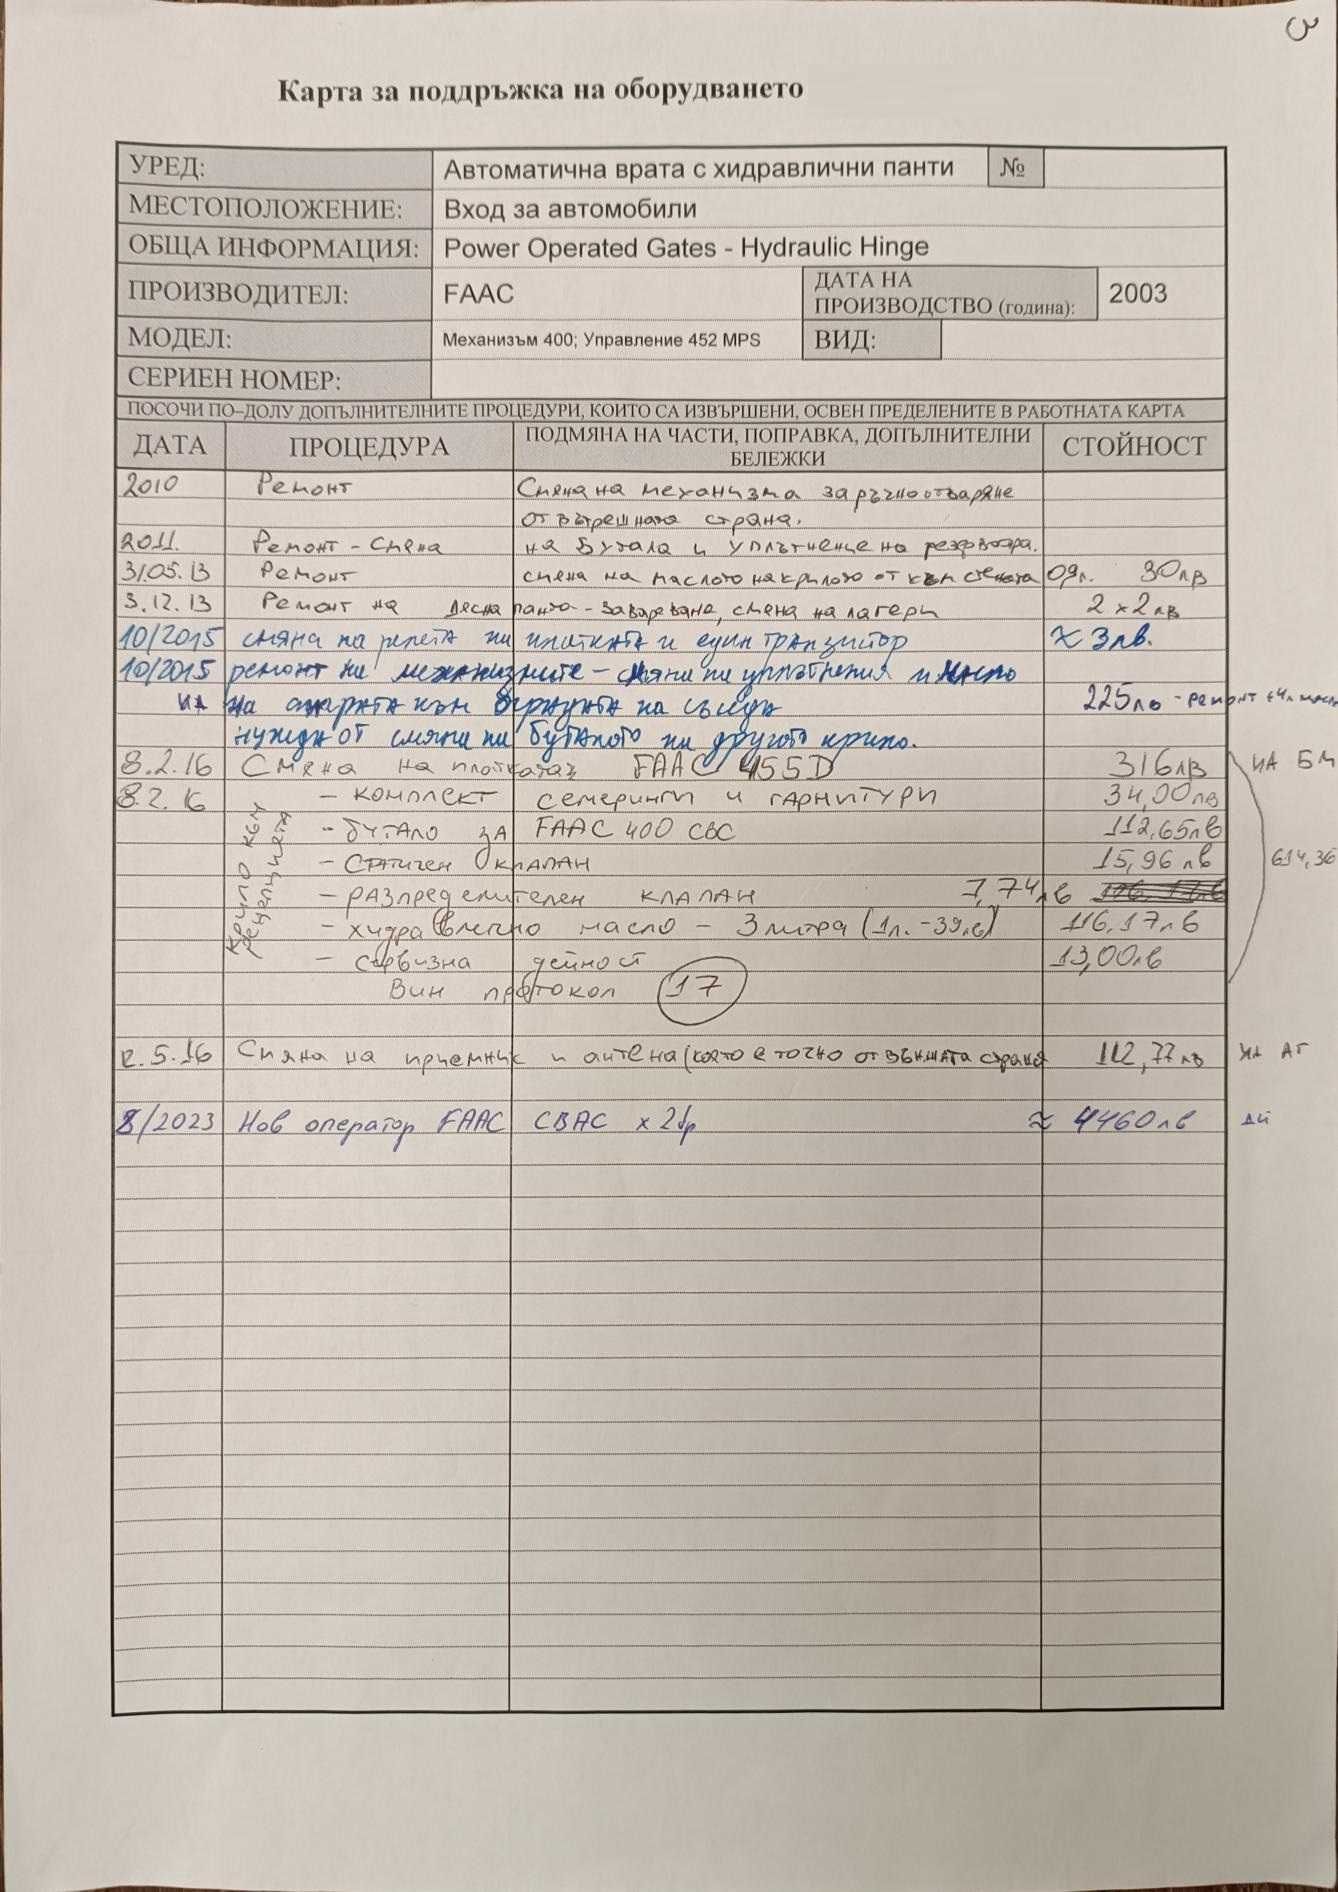 3
Карта за поддръжка на оборудването
УРЕД: Автоматична врата с хидравлични панти №
МЕСТОПОЛОЖЕНИЕ: Вход за автомобили
ОБЩА ИНФОРМАЦИЯ: Power Operated Gates - Hydraulic Hinge
ПРОИЗВОДИТЕЛ: FAAC ДАТА НА ПРОИЗВОДСТВО (година): 2003
МОДЕЛ: Механизъм 400; Управление 452 MPS ВИД:
СЕРИЕН НОМЕР:
ПОСОЧИ ПО–ДОЛУ ДОПЪЛНИТЕЛНИТЕ ПРОЦЕДУРИ, КОИТО СА ИЗВЪРШЕНИ, ОСВЕН ПРЕДЕЛЕНИТЕ В РАБОТНАТА КАРТА
ДАТА ПРОЦЕДУРА ПОДМЯНА НА ЧАСТИ, ПОПРАВКА, ДОПЪЛНИТЕЛНИ БЕЛЕЖКИ СТОЙНОСТ
2010 Ремонт Смяна на механизма за ръчно отваряне
от вътрешната страна.
2011. Ремонт - смяна на бутала и уплътнение на резервоара.
31.05.13 Ремонт смена на маслото на крилото от към стената 0,9л. 30лв
3.12.13 Ремонт на дясна панта - заваряване, смена на лагери 2 x 2лв
10/2015 смяна на релета на платката и един транзистор ≈ 3лв.
10/2015 ремонт на механизмите - смяна на уплътнения и масло
ИА на 225лв - ремонт +4л масло
нужда от смяна на буталото на другото крило.
8.2.16 Смяна на платката FAAC 455D 316лв ИА БМ
8.2.16 - комплект семеринги и гарнитури 34,00лв
Крило към рецепцията
- бутало за FAAC 400 CBC 112,65лв
- Статичен клапан 15,96 лв 614,36
- разпределителен клапан 7,74лв
- хидравлично масло - 3 литра (1л. - 39лв) 116,17лв
- сервизна дейност 13,00лв
Виж протокол 17
12.5.16 Смяна на приемник и антена (която е точно от външната страна 112,77лв ИА АГ
8/2023 Нов оператор FAAC CBAC x 2бр ≈ 4460лв ДЙ